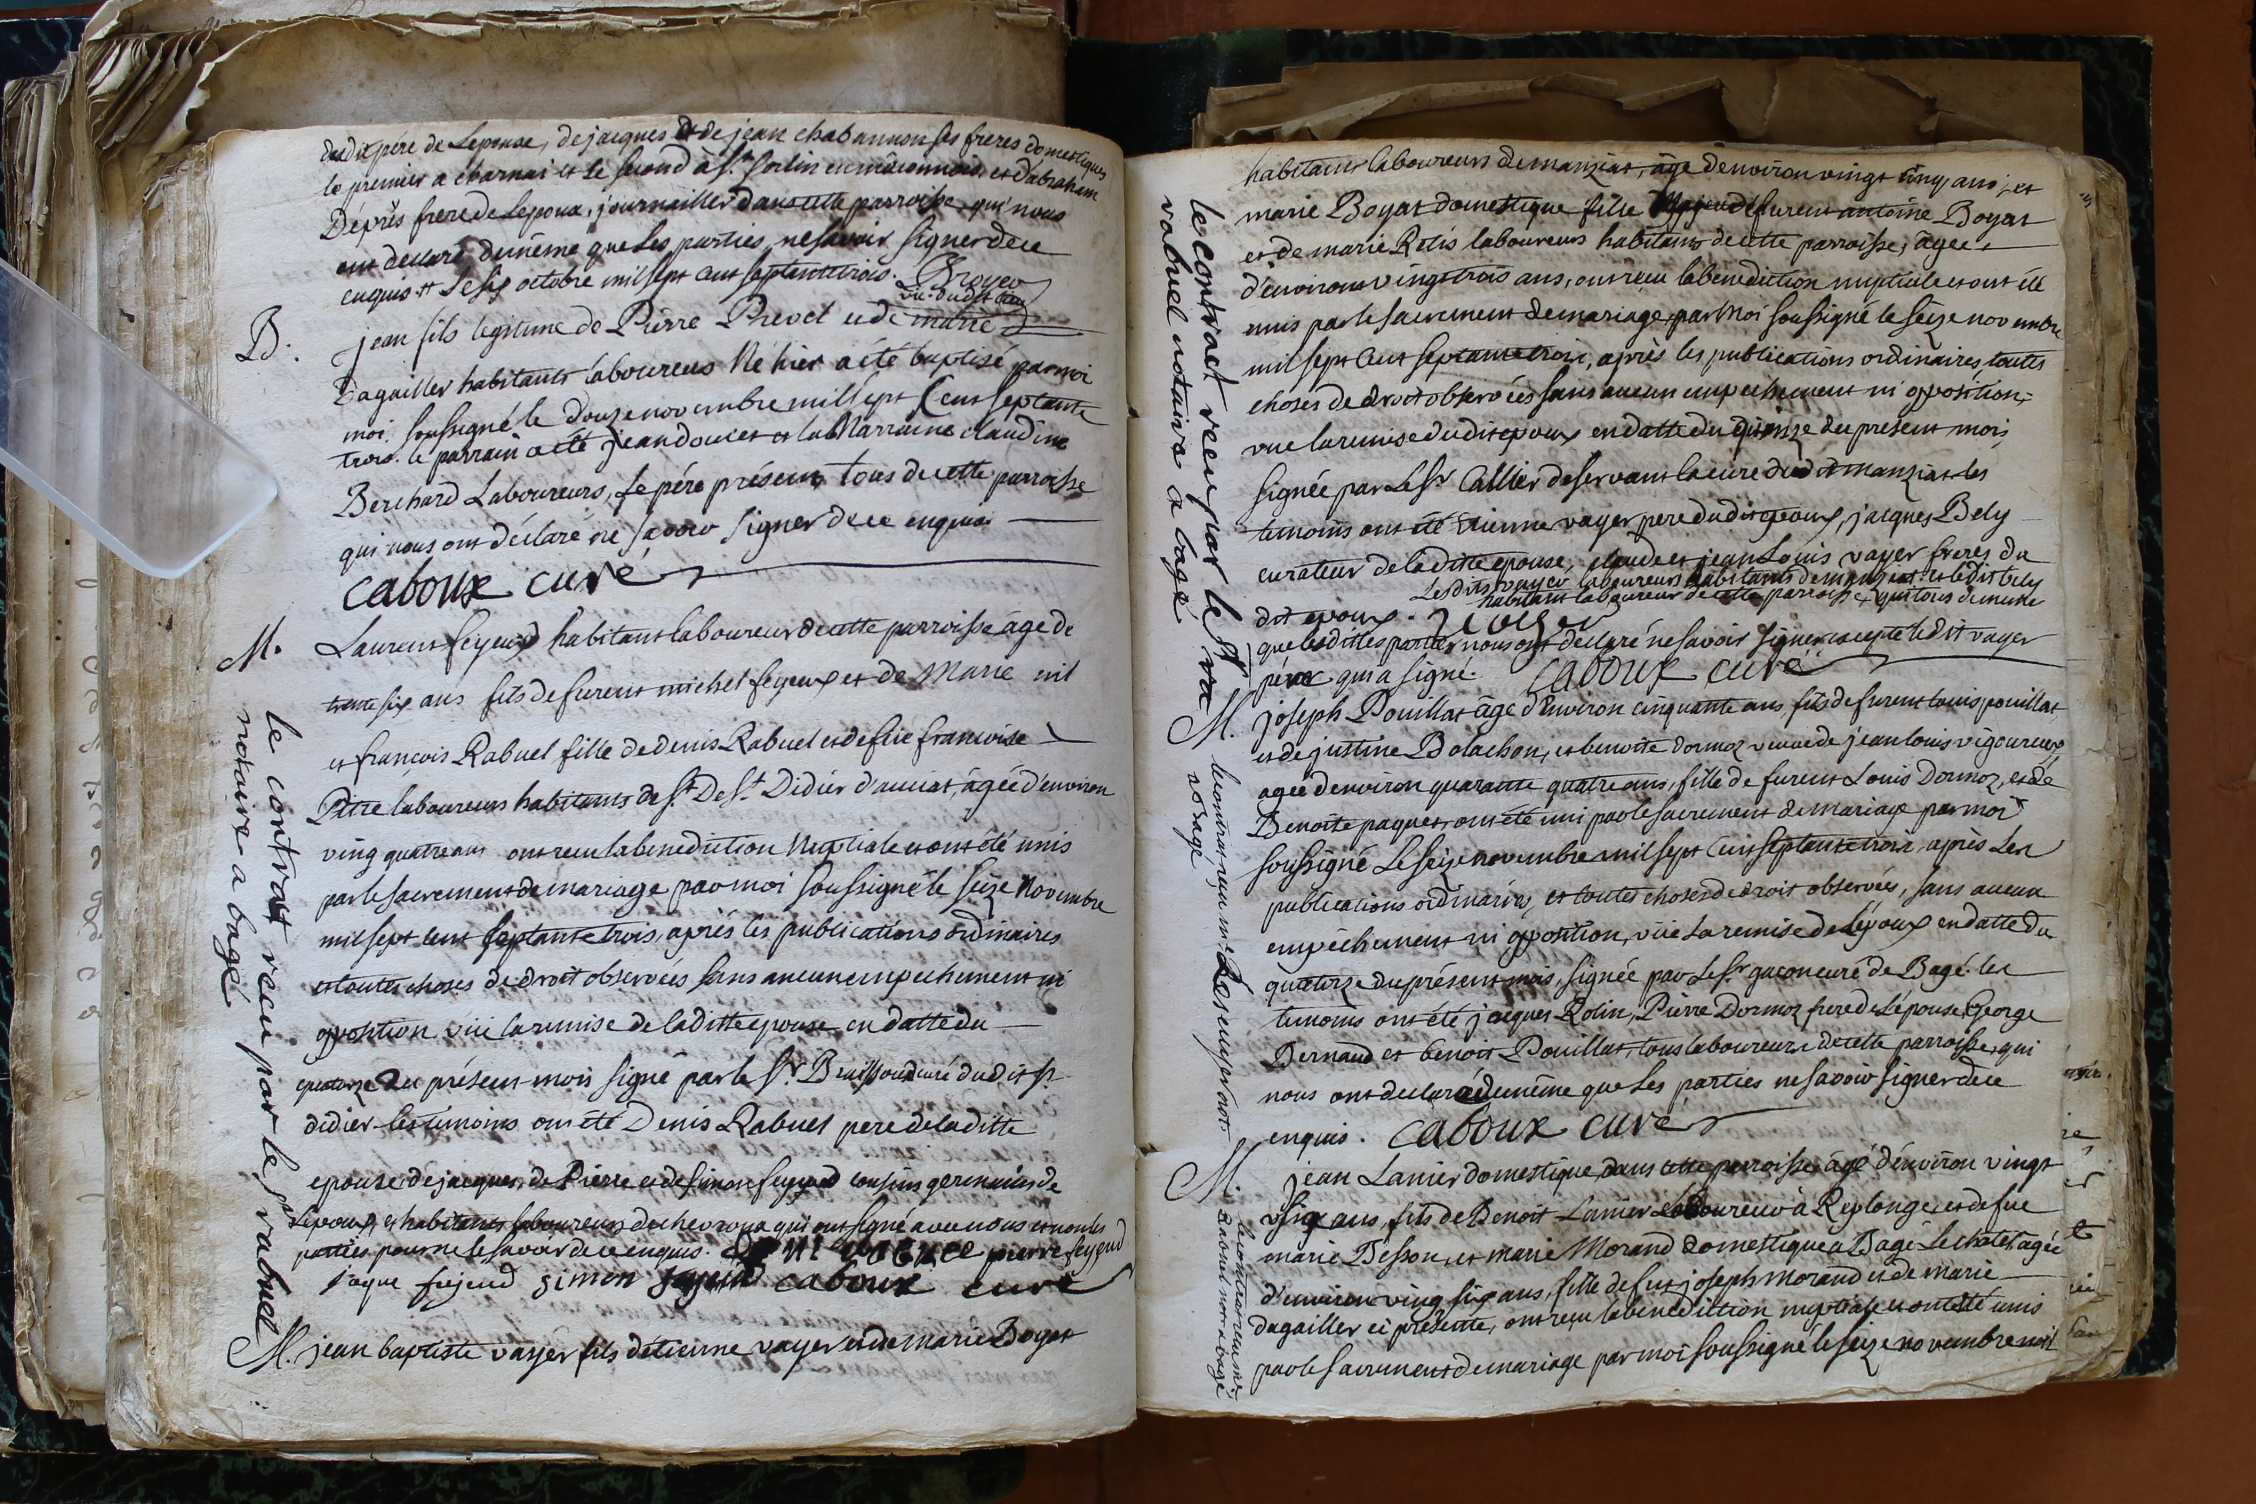 dudit père de Lepouse, de jacques et de jean chabannon ses freres domestiques
le premier a charnai et le second à St. Sorlin en mâconnois, et d'abraham
Déprès frere de Lepoux, journaillier dans cette parroisse qui nous
ont declaré de même que Les parties ne savoir signer de ce
enquis. Le six octobre mil sept cent septante trois. Broyer
vic. dudit lieu
B. jean fils legitime de Pierre Prevel et de marie
Dagailler habitants laboureurs Né hier a été baptisé par moi
moi soussigné le douze novembre mil sept Cent septante
trois. le parrain a été jean doucet et la Marraine claudine
Berchard Laboureurs, le pére présent, tous de cette parroisse
qui nous ont déclaré ne savoir signer de ce enquis
caboux curé
M. Laurent feyeux habitant laboureur de cette parroisse âgé de
trente six ans fils de furent michel feyeux et de Marie
et françois Rabuel fille de denis Rabuel et de feüe francoise
Pitre laboureurs habitants de St. De St. Didier d'auciat, âgée d'environ
ving quatre ans ont recu la benediction Nuptiale et ont été unis
par le sacrement de mariage par moi soussigné le seize Novembre
mil sept cent septante trois, après les publications ordinaires
et toutes choses de droit observées sans aucun empechement ni
opposition vüe la remise de laditte epouse en datte du
quatorze du présent mois signé par le Sr. curé dudit st
didier les témoins ont été Denis Rabuel pere de laditte
epouse, de jacques, de Pierre et de simon feyeud cousins germains de
Lepoux, et habitants laboureurs de chevroux qui ont signé avec nous et non les
parties pour ne le savoir de ce enquis. pierre feyeud
jaque feyeud simon feyeud caboux curé
le contrat recu par le Sr rabuel
notaire a bagé
M. jean baptiste vayer fils détienne vayer et de marie Boyat
habitants laboureurs de manziat, âgé d'environ vingt cinq ans, et
marie Boyat domestique fille de furent antoine Boyat
et de marie Rétis laboureurs habitants de cette parroisse, âgée
d'environ vingt trois ans, ont reçu la benediction nuptiale et ont été
unis par le sacrement de mariage par Moi soussigné le seize novembre
mil sept cent septante trois, après les publications ordinaires, toutes
choses de droit observées sans aucun empechement ni opposition,
vue la remise dudit epoux en datte du quinze du present mois
signée par Le Sr Callier deservant la cure dudit manziat les
temoins ont été Etienne vayer pere dudit epoux, jacques Bely
curateur de laditte epouse, claude et jean Louis vayer freres du
Lesdits vayer laboureurs habitants de manziat et ledit bely
habitant laboureur de cette parroisse, qui tous de même
dit epoux.
que lesdittes parties nous ont declaré ne savoir signer excepté ledit vayer
pére qui a signé. caboux curé
le contract recu par le Sr
rabuel notaire a bagé
M. joseph Pouillat âgé d'environ cinquante ans, fils de furent louis pouillat
et de justine Bolachon, et benoite dormoz veuve de jean louis vigoureux
agée d'environ quarante quatre ans, fille de furent Louis Dormoz, et de
Benoîte paquet, ont été uni par le sacrement de mariage par moi
soussigné Le seize novembre mil sept cent septante trois, après Les
publications ordinaires, et toutes choses de droit observées, sans aucun
empêchement ni opposition, vüe La remise de Lépoux en datte du
quatorze du présent mois, signée par Le Sr. gacon curé de Bagé. les
temoins ont été jacques Rolin, Pierre Dormoz frere de Lépouse, George
Bernaud et benoit Pouillat, tous laboureurs de cette parroisse, qui
nous ont declaré de même que Les parties ne savoir signer de ce
enquis. caboux curé
le contrat reçu me.
no bagé
M. jean Lanier domestique dans cette parroisse âgé d'environ vingt
six ans, fils de Benoit Lanier Laboureur à Replonge, et de fue
marie Bésson, et marie Morand domestique a Bagé Le chatel, agée
d'environ ving six ans, fille de fut joseph morand et de marie
dagailler ci presente, ont reçu la benediction nuptiale et ont été unis
par le sacrement de mariage par moi soussigné le seize novembre mil
le contrat recu me
Rabuel not a bagé